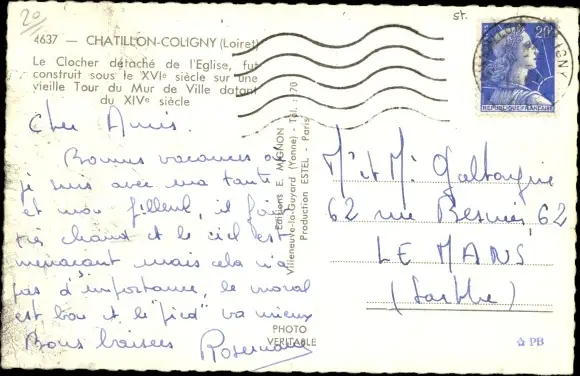 20
st.
4637 — CHATILLON-COLIGNY (Loiret)
Le Clocher détaché de l'Eglise, fut
construit sous le XVIe siècle sur une
vieille Tour du Mur de Ville datant
du XIVe siècle
Cher Amis.
Bonnes vacances où
je suis avec ma tante
et mon filleul, il fait
très chaud et le ciel est
menaçant mais cela n'a
pas d'importance, le moral
est bon et le "pied" va mieux
Bons baisers
Editions E. MIGNON
Villeneuve-la-Guyard (Yonne) - Tél. : 70
Production ESTEL - Paris
PHOTO
VERITABLE
20F
REPUBLIQUE FRANÇAISE
Mr et Me
62 rue 62
LE MANS
(Sarthe)
☆ PB